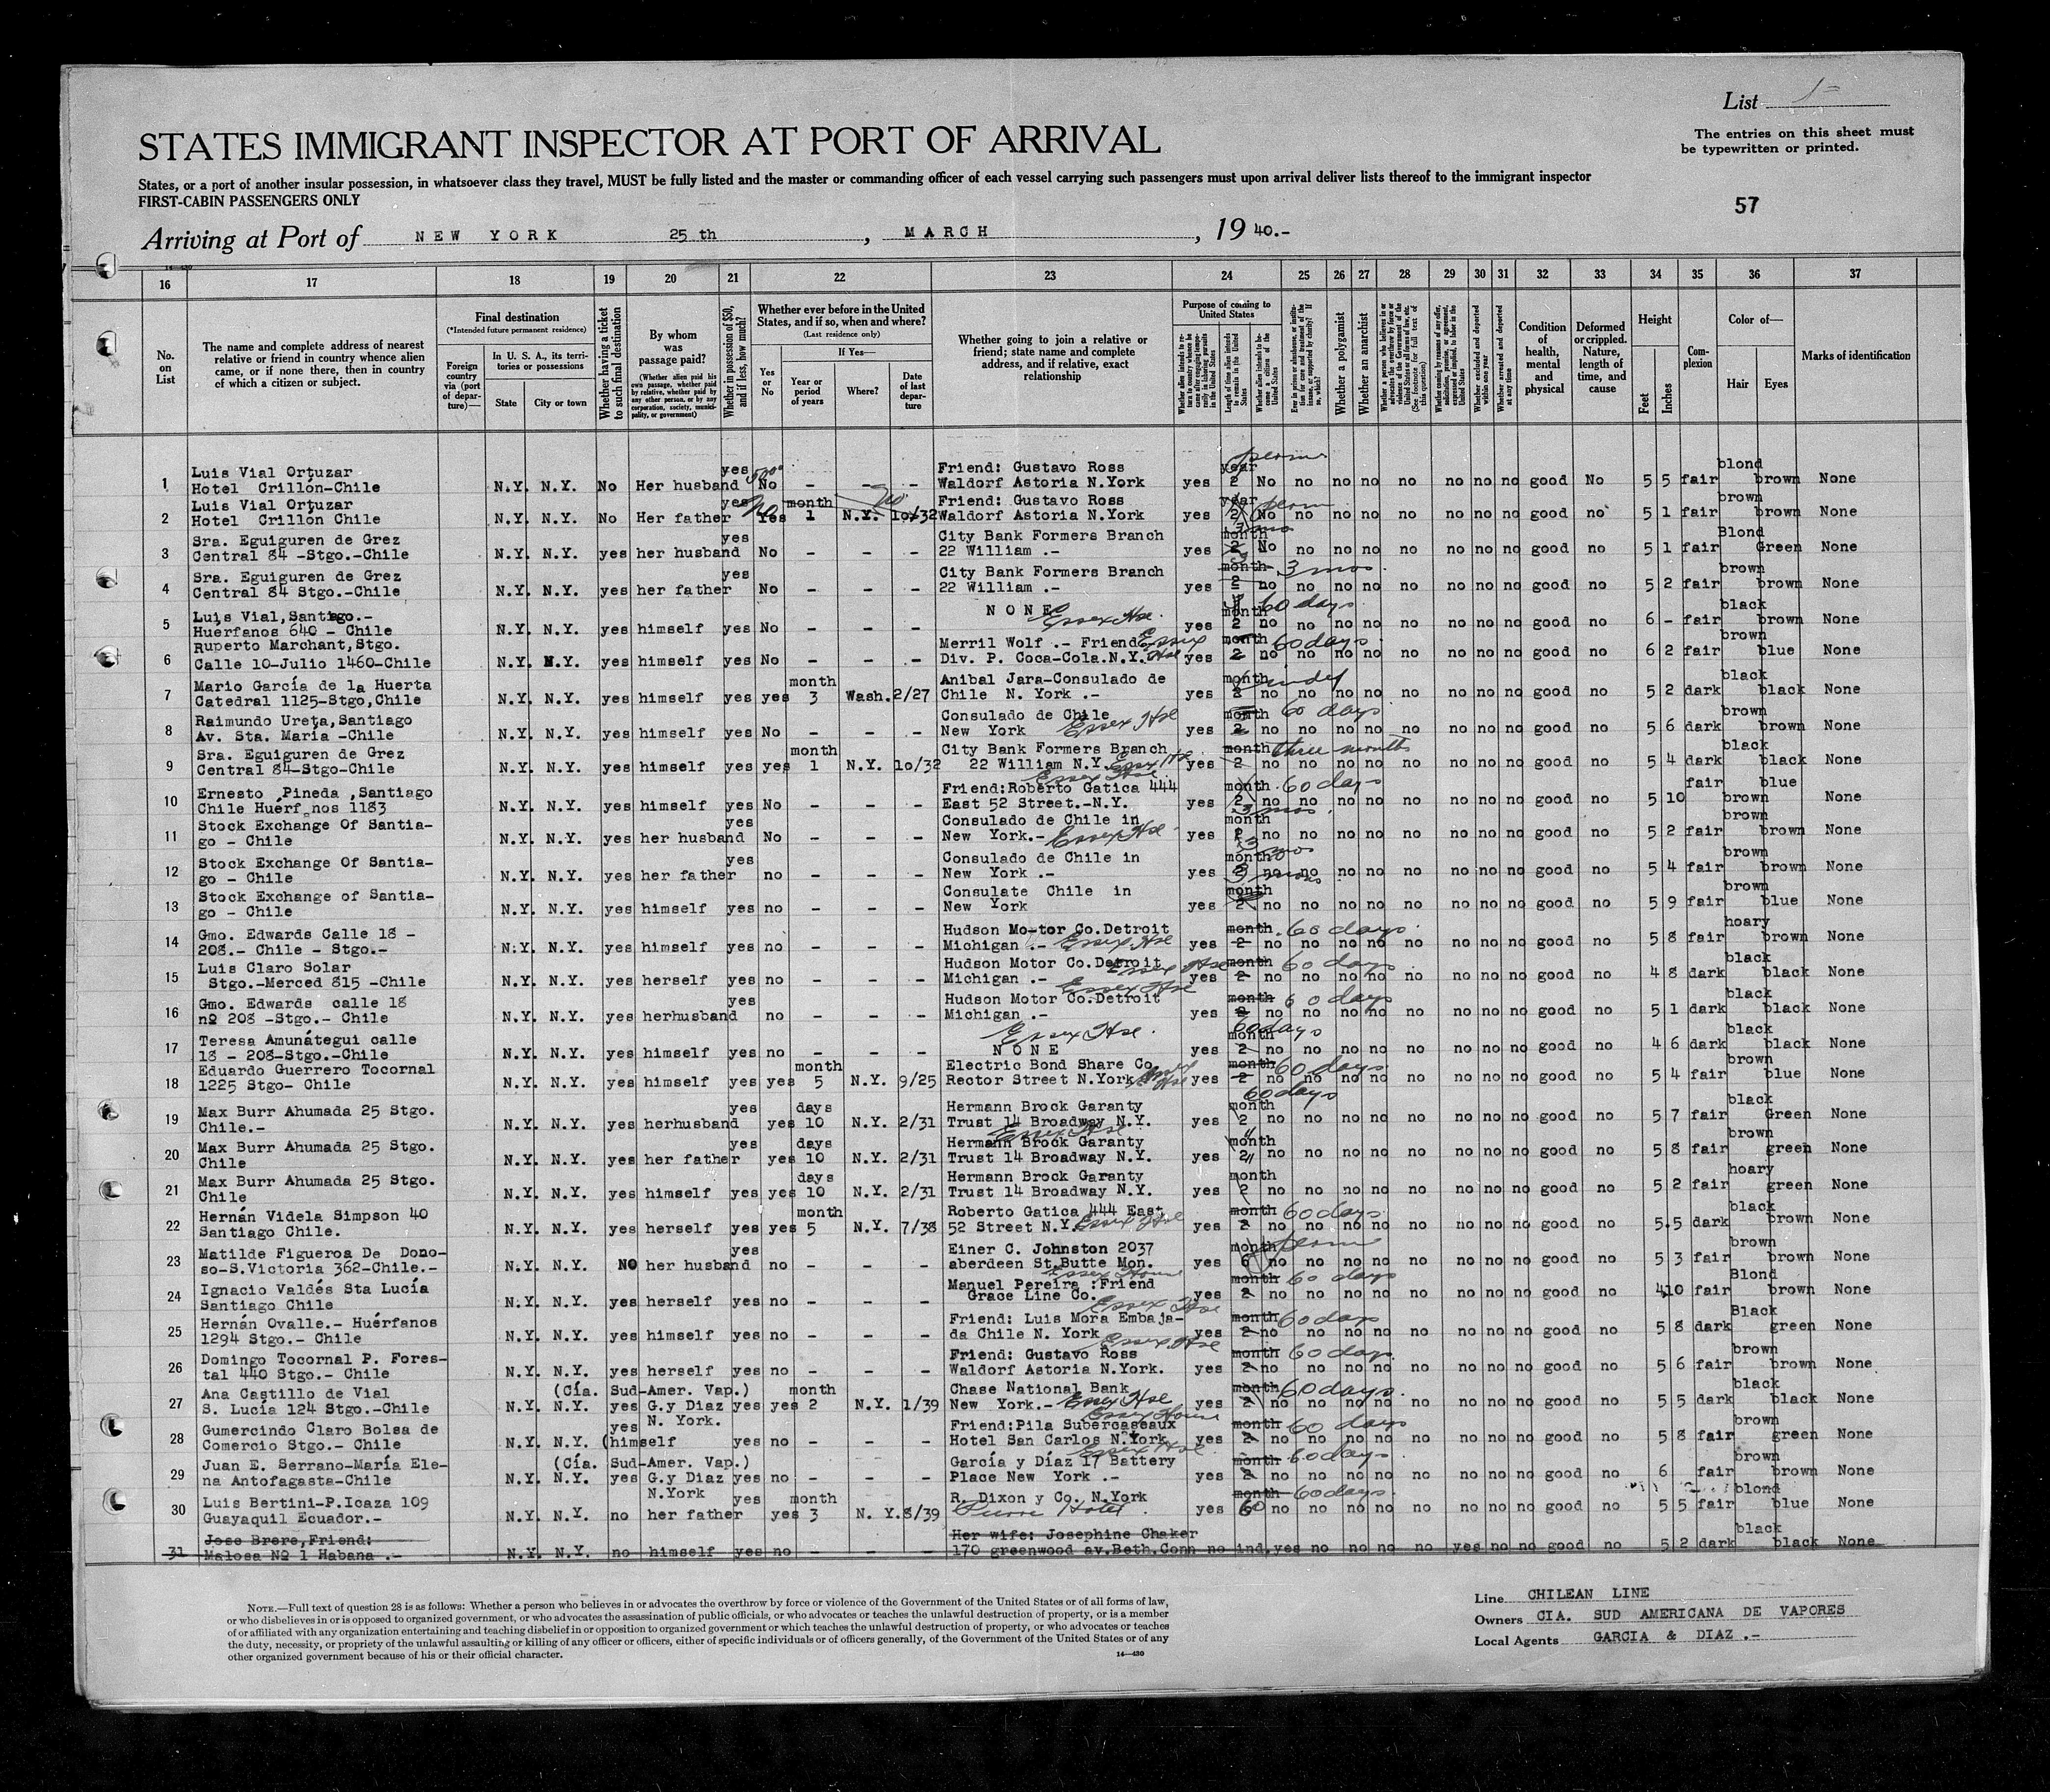 List 1=
STATES IMMIGRANT INSPECTOR AT PORT OF ARRIVAL
The entries on this sheet must
be typewritten or printed.
States, or a port of another insular possession, in whatsoever class they travel, MUST be fully listed and the master or commanding officer of each vessel carrying such passengers must upon arrival deliver lists thereof to the immigrant inspector
FIRST-CABIN PASSENGERS ONLY
57
Arriving at Port of NEW YORK 25 th , MARCH , 19 40.-
16 17 18 19 20 21 22 23 24 25 26 27 28 29 30 31 32 33 34 35 36 37
No. on List
The name and complete address of nearest
relative or friend in country whence alien
came, or if none there, then in country
of which a citizen or subject.
Final destination
(*Intended future permanent residence)
Foreign country via (port of departure)—
In U. S. A., its territories or possessions
State
City or town
Whether having a ticket to such final destination
By whom was passage paid?
(Whether alien paid his own passage, whether paid by relative, whether paid by any other person, or by any corporation, society, municipality, or government)
Whether in possession of $50, and if less, how much?
Whether ever before in the United States, and if so, when and where?
(Last residence only)
Yes or No
If Yes—
Year or period of years
Where?
Date of last departure
Whether going to join a relative or
friend; state name and complete
address, and if relative, exact
relationship
Purpose of coming to United States
Whether a polygamist
Whether an anarchist
Condition of health, mental and physical
Deformed or crippled. Nature, length of time, and cause
Height
Feet
Inches
Complexion
Color of—
Hair
Eyes
Marks of identification
1 Luis Vial Ortuzar Hotel Crillón-Chile N.Y. N.Y. No Her husband yes No - - - Friend: Gustavo Ross Waldorf Astoria N.York yes year 2 No no no no no no no no good No 5 5 fair blond brown None
2 Luis Vial Ortuzar Hotel Crillon Chile N.Y. N.Y. No Her father yes Yes No month 1 N.Y. 10/32 Friend: Gustavo Ross Waldorf Astoria N.York yes year 2 No no no no no no no no good no 5 1 fair brown brown None
3 Sra. Eguiguren de Grez Central 84 -Stgo.-Chile N.Y. N.Y. yes her husband yes No - - - City Bank Formers Branch 22 William .- yes month 2 No 3 mo no no no no no no no good no 5 1 fair Blond Green None
4 Sra. Eguiguren de Grez Central 84 Stgo.-Chile N.Y. N.Y. yes her father yes No - - - City Bank Formers Branch 22 William .- yes month 2 3 mos. no no no no no no no no good no 5 2 fair brown brown None
5 Luis Vial,Santiago.- Huerfanos 640 - Chile N.Y. N.Y. yes himself yes No - - - NONE Essex Hse. yes month 2 60 days no no no no no no no no good no 6 - fair black brown None
6 Ruperto Marchant,Stgo. Calle 10-Julio 1460-Chile N.Y. N.Y. yes himself yes No - - - Merril Wolf .- Friend Div. P. Coca-Cola.N.Y. Essex Hse yes month 2 60 days no no no no no no no no good no 6 2 fair brown blue None
7 Mario García de la Huerta Catedral 1125-Stgo,Chile N.Y. N.Y. yes himself yes yes month 3 Wash. 2/27 Anibal Jara-Consulado de Chile N. York .- yes month 2 no no no no no no no no good no 5 2 dark black black None
8 Raimundo Ureta,Santiago Av. Sta. María -Chile N.Y. N.Y. yes himself yes No - - - Consulado de Chile New York Essex Hse yes month 2 60 days no no no no no no no no good no 5 6 dark brown brown None
9 Sra. Eguiguren de Grez Central 84-Stgo-Chile N.Y. N.Y. yes himself yes yes month 1 N.Y. 10/32 City Bank Formers Branch 22 William N.Y. Essex Hse yes month 2 three months no no no no no no no no good no 5 4 dark black black None
10 Ernesto Pineda ,Santiago Chile Huérf nos 1183 N.Y. N.Y. yes himself yes No - - - Essex Hse. Friend:Roberto Gatica 444 East 52 Street.-N.Y. yes month 2 60 days no no no no no no no no good no 5 10 fair brown blue None
11 Stock Exchange Of Santia- go - Chile N.Y. N.Y. yes her husband yes No - - - Consulado de Chile in New York.- Essex Hse yes month 2 3 mos. no no no no no no no no good no 5 2 fair brown brown None
12 Stock Exchange Of Santia- go - Chile N.Y. N.Y. yes her father yes no - - - Consulado de Chile in New York .- yes month 3 mos no no no no no no no no good no 5 4 fair brown brown None
13 Stock Exchange of Santia- go - Chile N.Y. N.Y. yes himself yes no - - - Consulate Chile in New York yes month 2 3 mos no no no no no no no no good no 5 9 fair brown blue None
14 Gmo. Edwards Calle 18 - 208.- Chile - Stgo.- N.Y. N.Y. yes himself yes no - - - Hudson Mo-tor Co.Detroit Michigan .- Essex Hse yes month 2 60 days no no no no no no no no good no 5 8 fair hoary brown None
15 Luis Claro Solar Stgo.-Merced 815 -Chile N.Y. N.Y. yes herself yes no - - - Hudson Motor Co.Detroit Michigan .- Essex Hse yes month 2 60 days no no no no no no no no good no 4 8 dark black black None
16 Gmo. Edwards calle 18 nº 208 -Stgo.- Chile N.Y. N.Y. yes herhusband yes no - - - Essex Hse Hudson Motor Co.Detroit Michigan .- yes month 2 60 days no no no no no no no no good no 5 1 dark black black None
17 Teresa Amunátegui calle 18 - 208-Stgo.-Chile N.Y. N.Y. yes himself yes no - - - Essex Hse. NONE yes month 2 60 days no no no no no no no no good no 4 6 dark black black None
18 Eduardo Guerrero Tocornal 1225 Stgo- Chile N.Y. N.Y. yes himself yes yes month 5 N.Y. 9/25 Electric Bond Share Co. Rector Street N.York Essex Hse yes month 2 60 days no no no no no no no no good no 5 4 fair brown blue None
19 Max Burr Ahumada 25 Stgo. Chile.- N.Y. N.Y. yes herhusband yes yes days 10 N.Y. 2/31 Hermann Brock Garanty Trust 14 Broadway N.Y. Essex Hse yes month 2 60 days no no no no no no no no good no 5 7 fair black Green None
20 Max Burr Ahumada 25 Stgo. Chile N.Y. N.Y. yes her father yes yes days 10 N.Y. 2/31 Hermann Brock Garanty Trust 14 Broadway N.Y. yes month 2 " no no no no no no no no good no 5 8 fair brown green None
21 Max Burr Ahumada 25 Stgo. Chile N.Y. N.Y. yes himself yes yes days 10 N.Y. 2/31 Hermann Brock Garanty Trust 14 Broadway N.Y. yes month 2 " no no no no no no no no good no 5 2 fair hoary green None
22 Hernán Videla Simpson 40 Santiago Chile. N.Y. N.Y. yes herself yes yes month 5 N.Y. 7/38 Roberto Gatica 444 East 52 Street N.Y. Essex Hse yes month 2 60 days no no no no no no no no good no 5.5 dark black brown None
23 Matilde Figueroa De Dono- so-S.Victoria 362-Chile.- N.Y. N.Y. NO her husband yes no - - - Einer C. Johnston 2037 aberdeen St.Butte Mon. yes month 6 no no no no no no no no good no 5 3 fair brown brown None
24 Ignacio Valdés Sta Lucía Santiago Chile N.Y. N.Y. yes herself yes no - - - Essex House Manuel Pereira :Friend Grace Line Co. yes month 2 60 days no no no no no no no no good no 4 10 fair Blond brown None
25 Hernán Ovalle.- Huérfanos 1294 Stgo.- Chile N.Y. N.Y. yes himself yes no - - - Essex Hse Friend: Luis Mora Embaja- da Chile N. York yes month 2 60 days no no no no no no no no good no 5 8 dark Black green None
26 Domingo Tocornal P. Fores- tal 440 Stgo.- Chile N.Y. N.Y. yes herself yes no - - - Essex Hse Friend: Gustavo Ross Waldorf Astoria N.York. yes month 2 60 days no no no no no no no no good no 5 6 fair brown brown None
27 Ana Castillo de Vial S. Lucía 124 Stgo.-Chile N.Y. N.Y. yes (Cía. Sud-Amer. Vap.) G.y Diaz N. York. yes yes month 2 N.Y. 1/39 Chase National Bank New York.- Essex Hse yes month 2 60 days. no no no no no no no no good no 5 5 dark black black None
28 Gumercindo Claro Bolsa de Comercio Stgo.- Chile N.Y. N.Y. yes (himself yes no - - - Essex House Friend:Pila Subercaseaux Hotel San Carlos N.York yes month 2 60 days no no no no no no no no good no 5 8 fair brown green None
29 Juan E. Serrano-María Ele- na Antofagasta-Chile N.Y. N.Y. yes (Cía. Sud-Amer. Vap.) G.y Diaz N.York yes no - - - Essex Hse. García y Díaz 17 Battery Place New York .- yes month 2 60 days no no no no no no no no good no 6 fair brown brown None
30 Luis Bertini-P.Icaza 109 Guayaquil Ecuador.- N.Y. N.Y. no her father yes yes month 3 N. Y. 8/39 R. Dixon y Co. N.York Pierre Hotel yes month 60 60 days. no no no no no no no no good no 5 5 fair blond blue None
31 Jose Brere,Friend: Malosa Nº 1 Habana .- N.Y. N.Y. no himself yes no - - - Her wife: Josephine Chaker 170 greenwood av.Beth.Conn no ind. yes no no no no yes no no good no 5 2 dark black black None
NOTE.—Full text of question 28 is as follows: Whether a person who believes in or advocates the overthrow by force or violence of the Government of the United States or of all forms of law,
or who disbelieves in or is opposed to organized government, or who advocates the assassination of public officials, or who advocates or teaches the unlawful destruction of property, or is a member
of or affiliated with any organization entertaining and teaching disbelief in or opposition to organized government or which teaches the unlawful destruction of property, or who advocates or teaches
the duty, necessity, or propriety of the unlawful assaulting or killing of any officer or officers, either of specific individuals or of officers generally, of the Government of the United States or of any
other organized government because of his or their official character.
14—430
Line CHILEAN LINE
Owners CIA. SUD AMERICANA DE VAPORES
Local Agents GARCIA & DIAZ .-